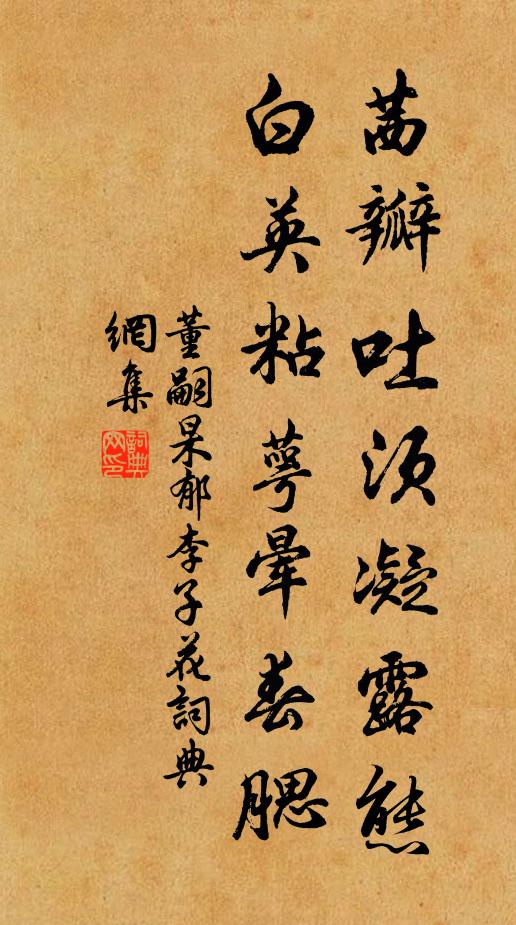 茜瓣吐須凝露態
白英粘萼暈春腮
董嗣杲郁李子花詞典
網集
詞典網印